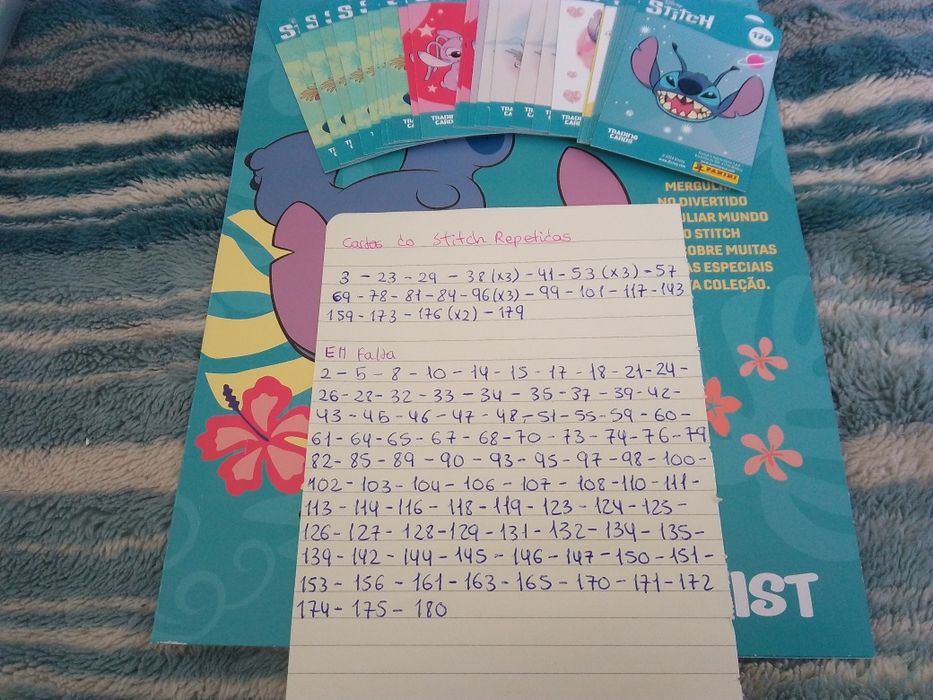 STITCH
179
TRADING
CARDS
PANINI
MERGULH
NO DIVERTIDO
ULIAR MUNDO
O STITCH
OBRE MUITAS
AS ESPECIAIS
A COLEÇÃO.
Cartas do Stitch Repetidas
3 - 23 - 29 - 38 (x3) - 41 - 53 (x3) - 57
69 - 78 - 81 - 84 - 96 (x3) - 99 - 101 - 117 - 143
159 - 173 - 176 (x2) - 179
EM Falta
2 - 5 - 8 - 10 - 14 - 15 - 17 - 18 - 21 - 24 -
26 - 28 - 32 - 33 - 34 - 35 - 37 - 39 - 42 -
43 - 45 - 46 - 47 - 48 - 51 - 55 - 59 - 60 -
61 - 64 - 65 - 67 - 68 - 70 - 73 - 74 - 76 - 79
82 - 85 - 89 - 90 - 93 - 95 - 97 - 98 - 100 -
102 - 103 - 104 - 106 - 107 - 108 - 110 - 111 -
113 - 114 - 116 - 118 - 119 - 123 - 124 - 125 -
126 - 127 - 128 - 129 - 131 - 132 - 134 - 135 -
139 - 142 - 144 - 145 - 146 - 147 - 150 - 151 -
153 - 156 - 161 - 163 - 165 - 170 - 171 - 172
174 - 175 - 180
IST